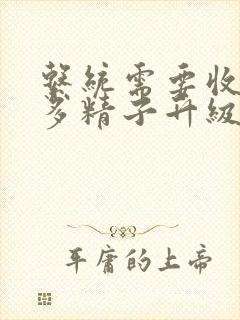 繫統需要收
多精子升級
平庸的上帝